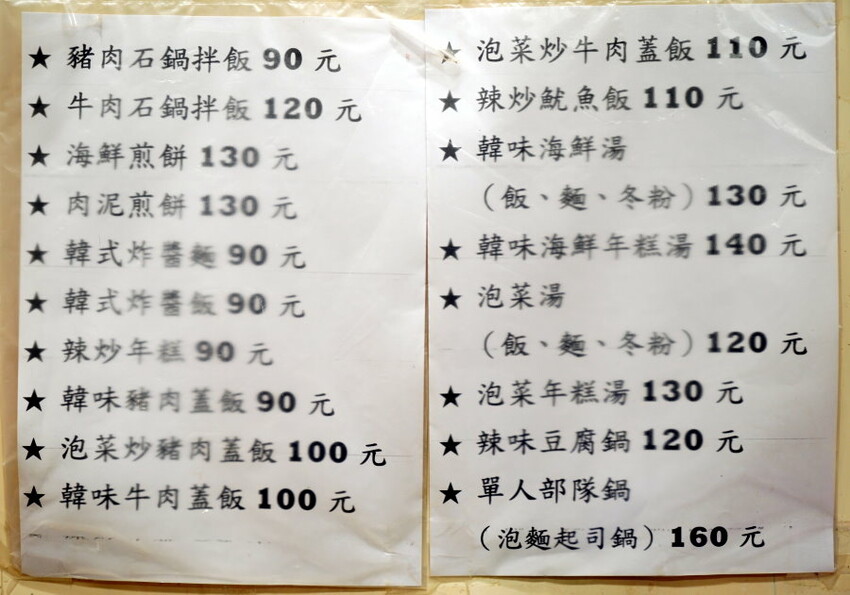 ★ 豬肉石鍋拌飯 90 元
★ 牛肉石鍋拌飯 120 元
★ 海鮮煎餅 130 元
★ 肉泥煎餅 130 元
★ 韓式炸醬麵 90 元
★ 韓式炸醬飯 90 元
★ 辣炒年糕 90 元
★ 韓味豬肉蓋飯 90 元
★ 泡菜炒豬肉蓋飯 100 元
★ 韓味牛肉蓋飯 100 元
★ 泡菜炒牛肉蓋飯 110 元
★ 辣炒魷魚飯 110 元
★ 韓味海鮮湯
（飯、麵、冬粉）130 元
★ 韓味海鮮年糕湯 140 元
★ 泡菜湯
（飯、麵、冬粉）120 元
★ 泡菜年糕湯 130 元
★ 辣味豆腐鍋 120 元
★ 單人部隊鍋
（泡麵起司鍋）160 元